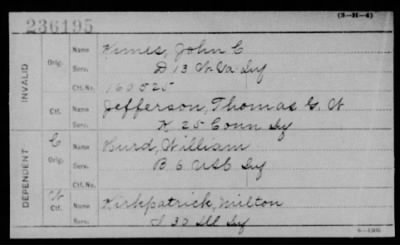 (3-H-4)
236195
INVALID
Orig.
Name Kimes, John C
Serv. D 13 W. Va Inf
Ctf. No. 160525
Ctf.
Name Jefferson, Thomas G. W
Serv. K 25 Conn Inf
DEPENDENT
C
Orig.
Name Burd, William
Serv. B 6 USC Inf
Ctf. No.
Ctf.
Name Kirkpatrick, Milton
Serv. I 30 Ill Inf